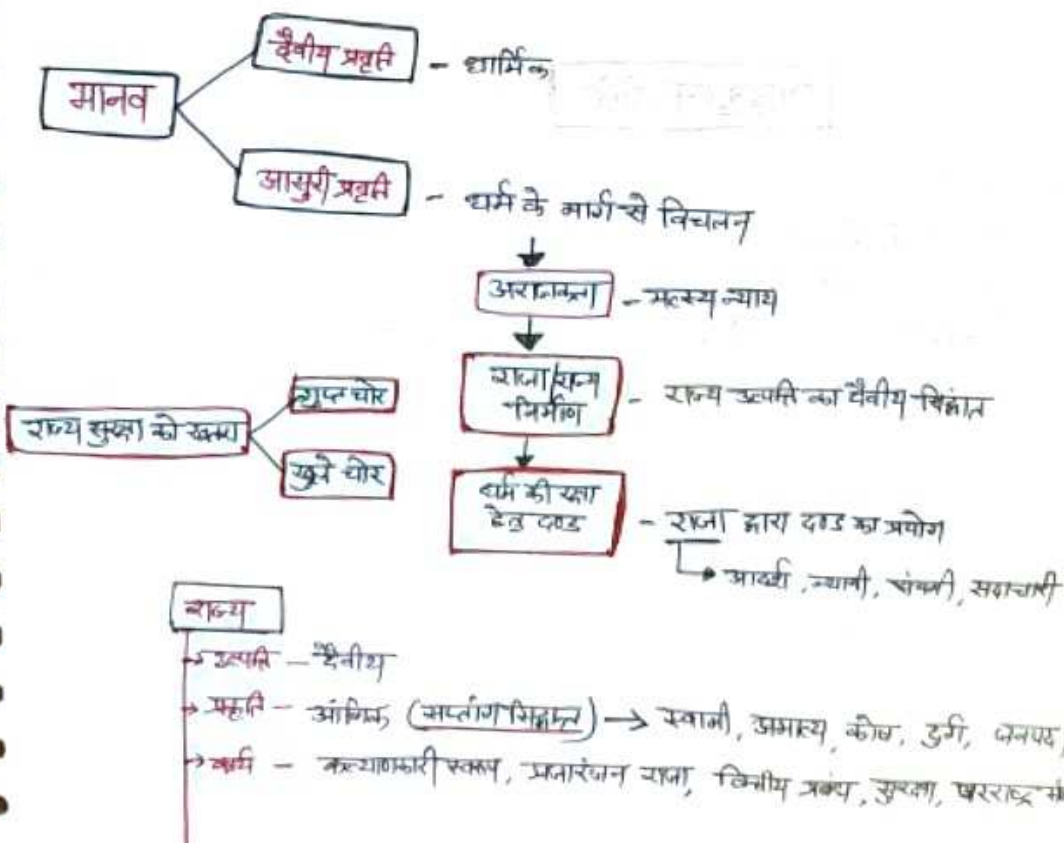 दैवीय प्रवृत्ति - धार्मिक
मानव
आसुरी प्रवृत्ति - धर्म के मार्ग से विचलन
अराजकता - मत्स्य न्याय
राजा/राज्य
निर्माण - राज्य उत्पत्ति का दैवीय सिद्धांत
राज्य सुरक्षा को खतरा
गुप्त चोर
खुले चोर
धर्म की रक्षा
हेतु दण्ड - राजा द्वारा दण्ड का प्रयोग
आदर्श, न्यायी, संयमी, सदाचारी
राज्य
उत्पत्ति - दैवीय
प्रकृति - आंगिक (सप्तांग सिद्धान्त) → स्वामी, अमात्य, कोष, दुर्ग, जनपद,
कार्य - कल्याणकारी स्वरूप, प्रजारंजन राजा, वित्तीय प्रबंध, सुरक्षा, परराष्ट्र